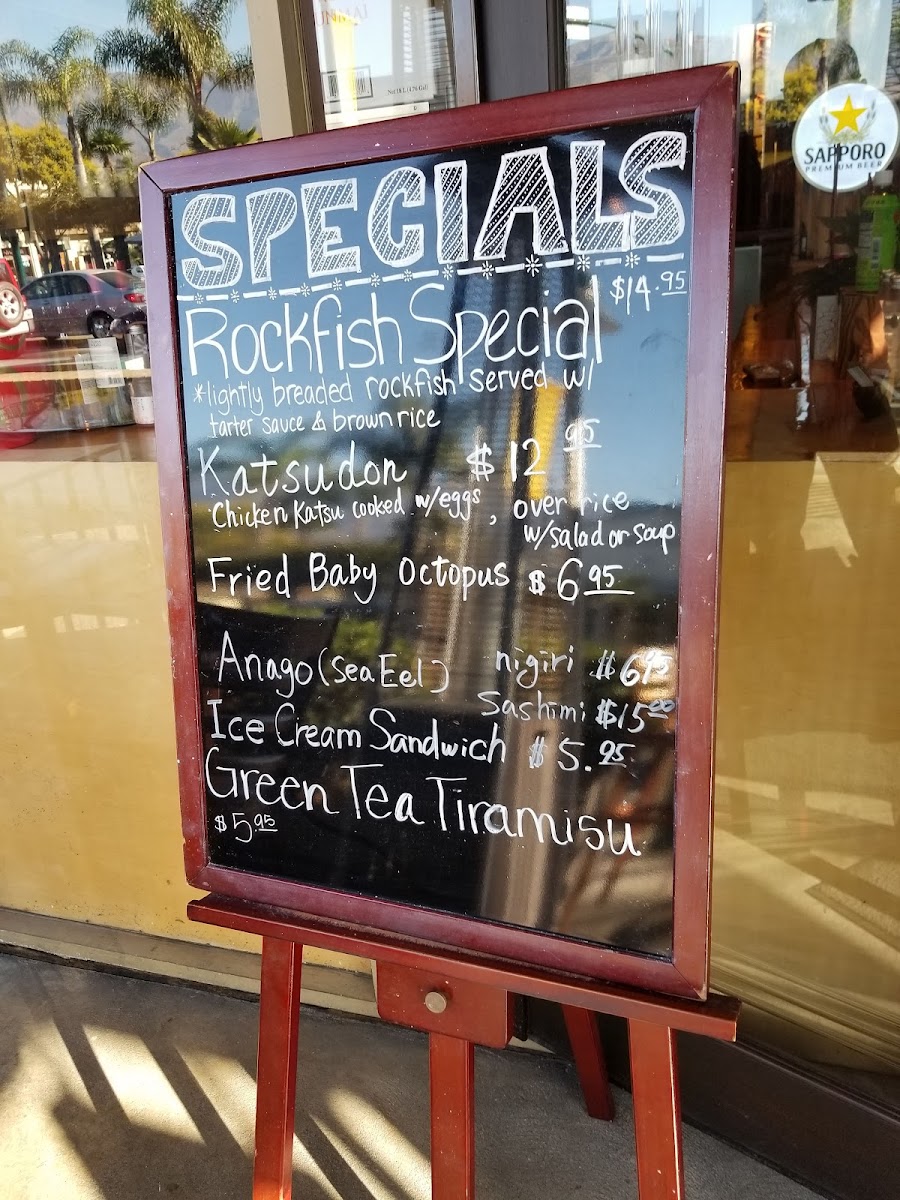 SPECIALS
$14.95
Rockfish Special
*lightly breaded rockfish served w/
tarter sauce & brown rice
Katsudon $12 95
Chicken Katsu cooked w/eggs, over rice
w/salad or soup
Fried Baby Octopus $6 95
Anago (Sea Eel) nigiri $6 95
Sashimi $15 00
Ice Cream Sandwich $5.95
Green Tea Tiramisu
$5.95
SAPPORO
PREMIUM BEER